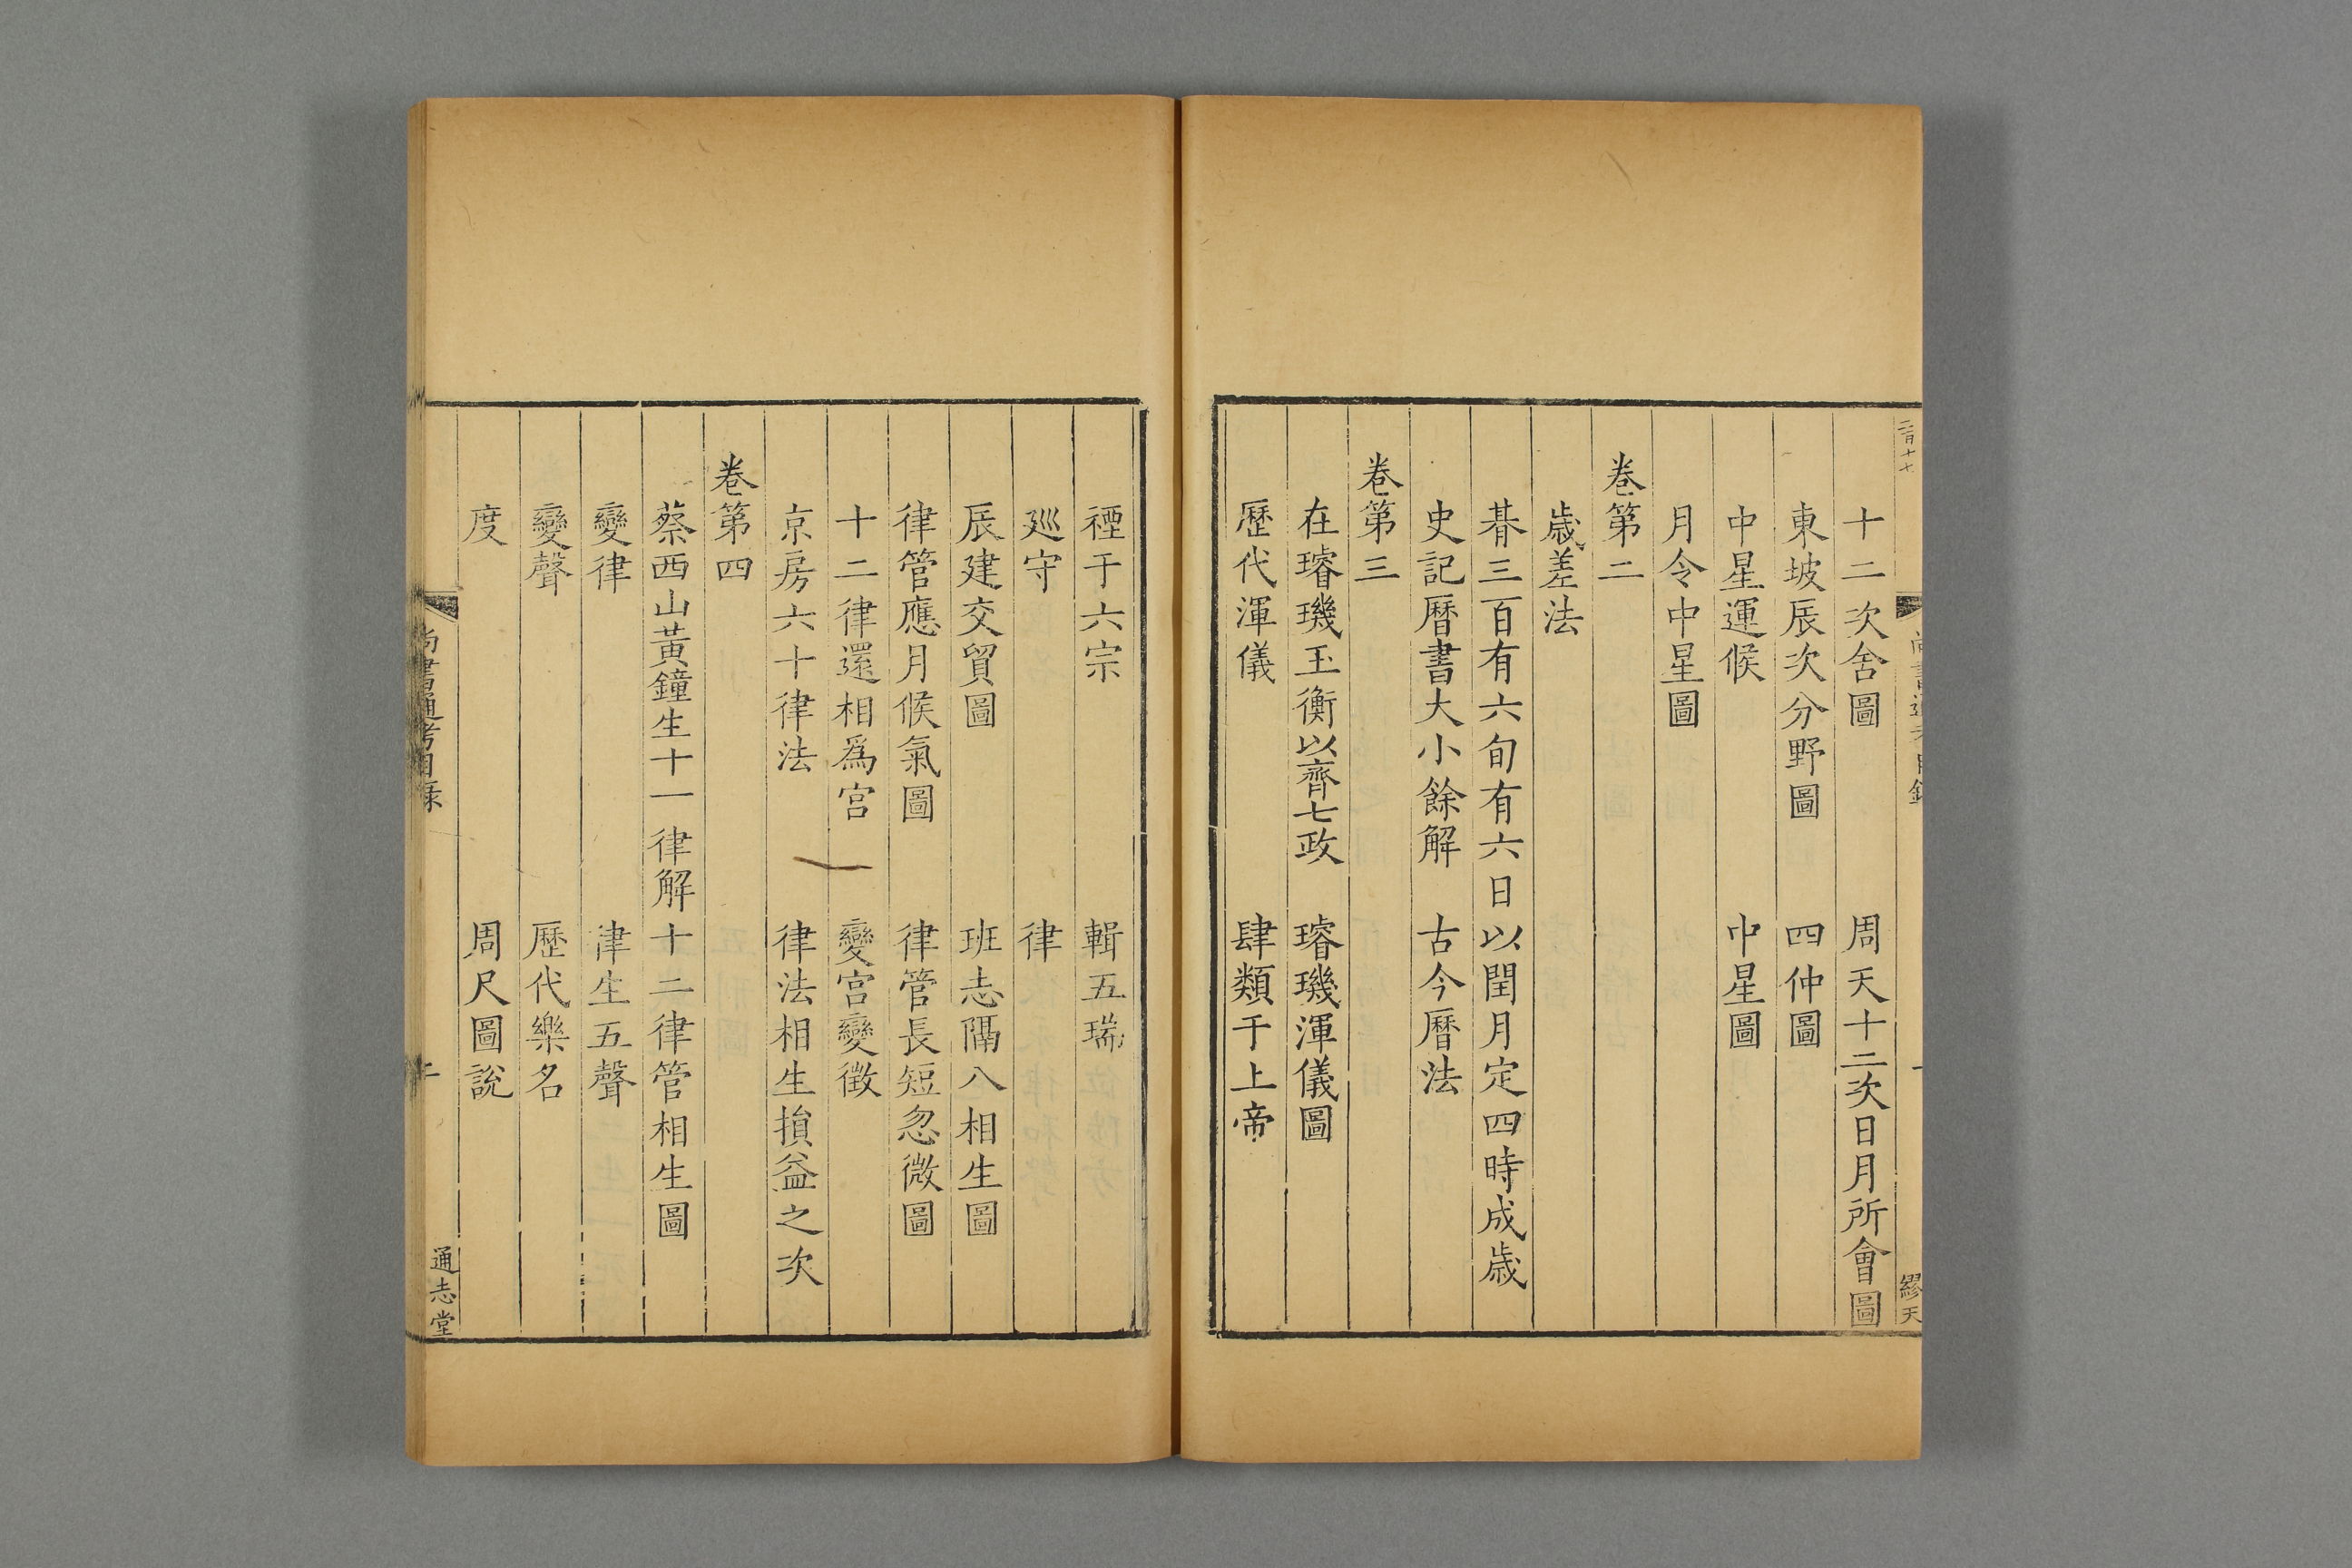 十二次舍圖　周天十二次日月所會圖
東坡辰次分野圖　四仲圖
中星運候　中星圖
月令中星圖
卷第二
歲差法
朞三百有六旬有六日以閏月定四時成歲
史記曆書大小餘解　古今曆法
卷第三
在璿璣玉衡以齊七政　璿璣渾儀圖
歷代渾儀　肆類于上帝
禋于六宗　輯五瑞
廵守　律
辰建交貿圖　班志隔八相生圖
律管應月候氣圖　律管長短忽微圖
十二律還相爲宮　變宮變徵
京房六十律法　律法相生損益之次
卷第四
蔡西山黃鐘生十一律解　十二律管相生圖
變律　律生五聲
變聲　歷代樂名
度　周尺圖說
尚書通考目錄　二　通志堂